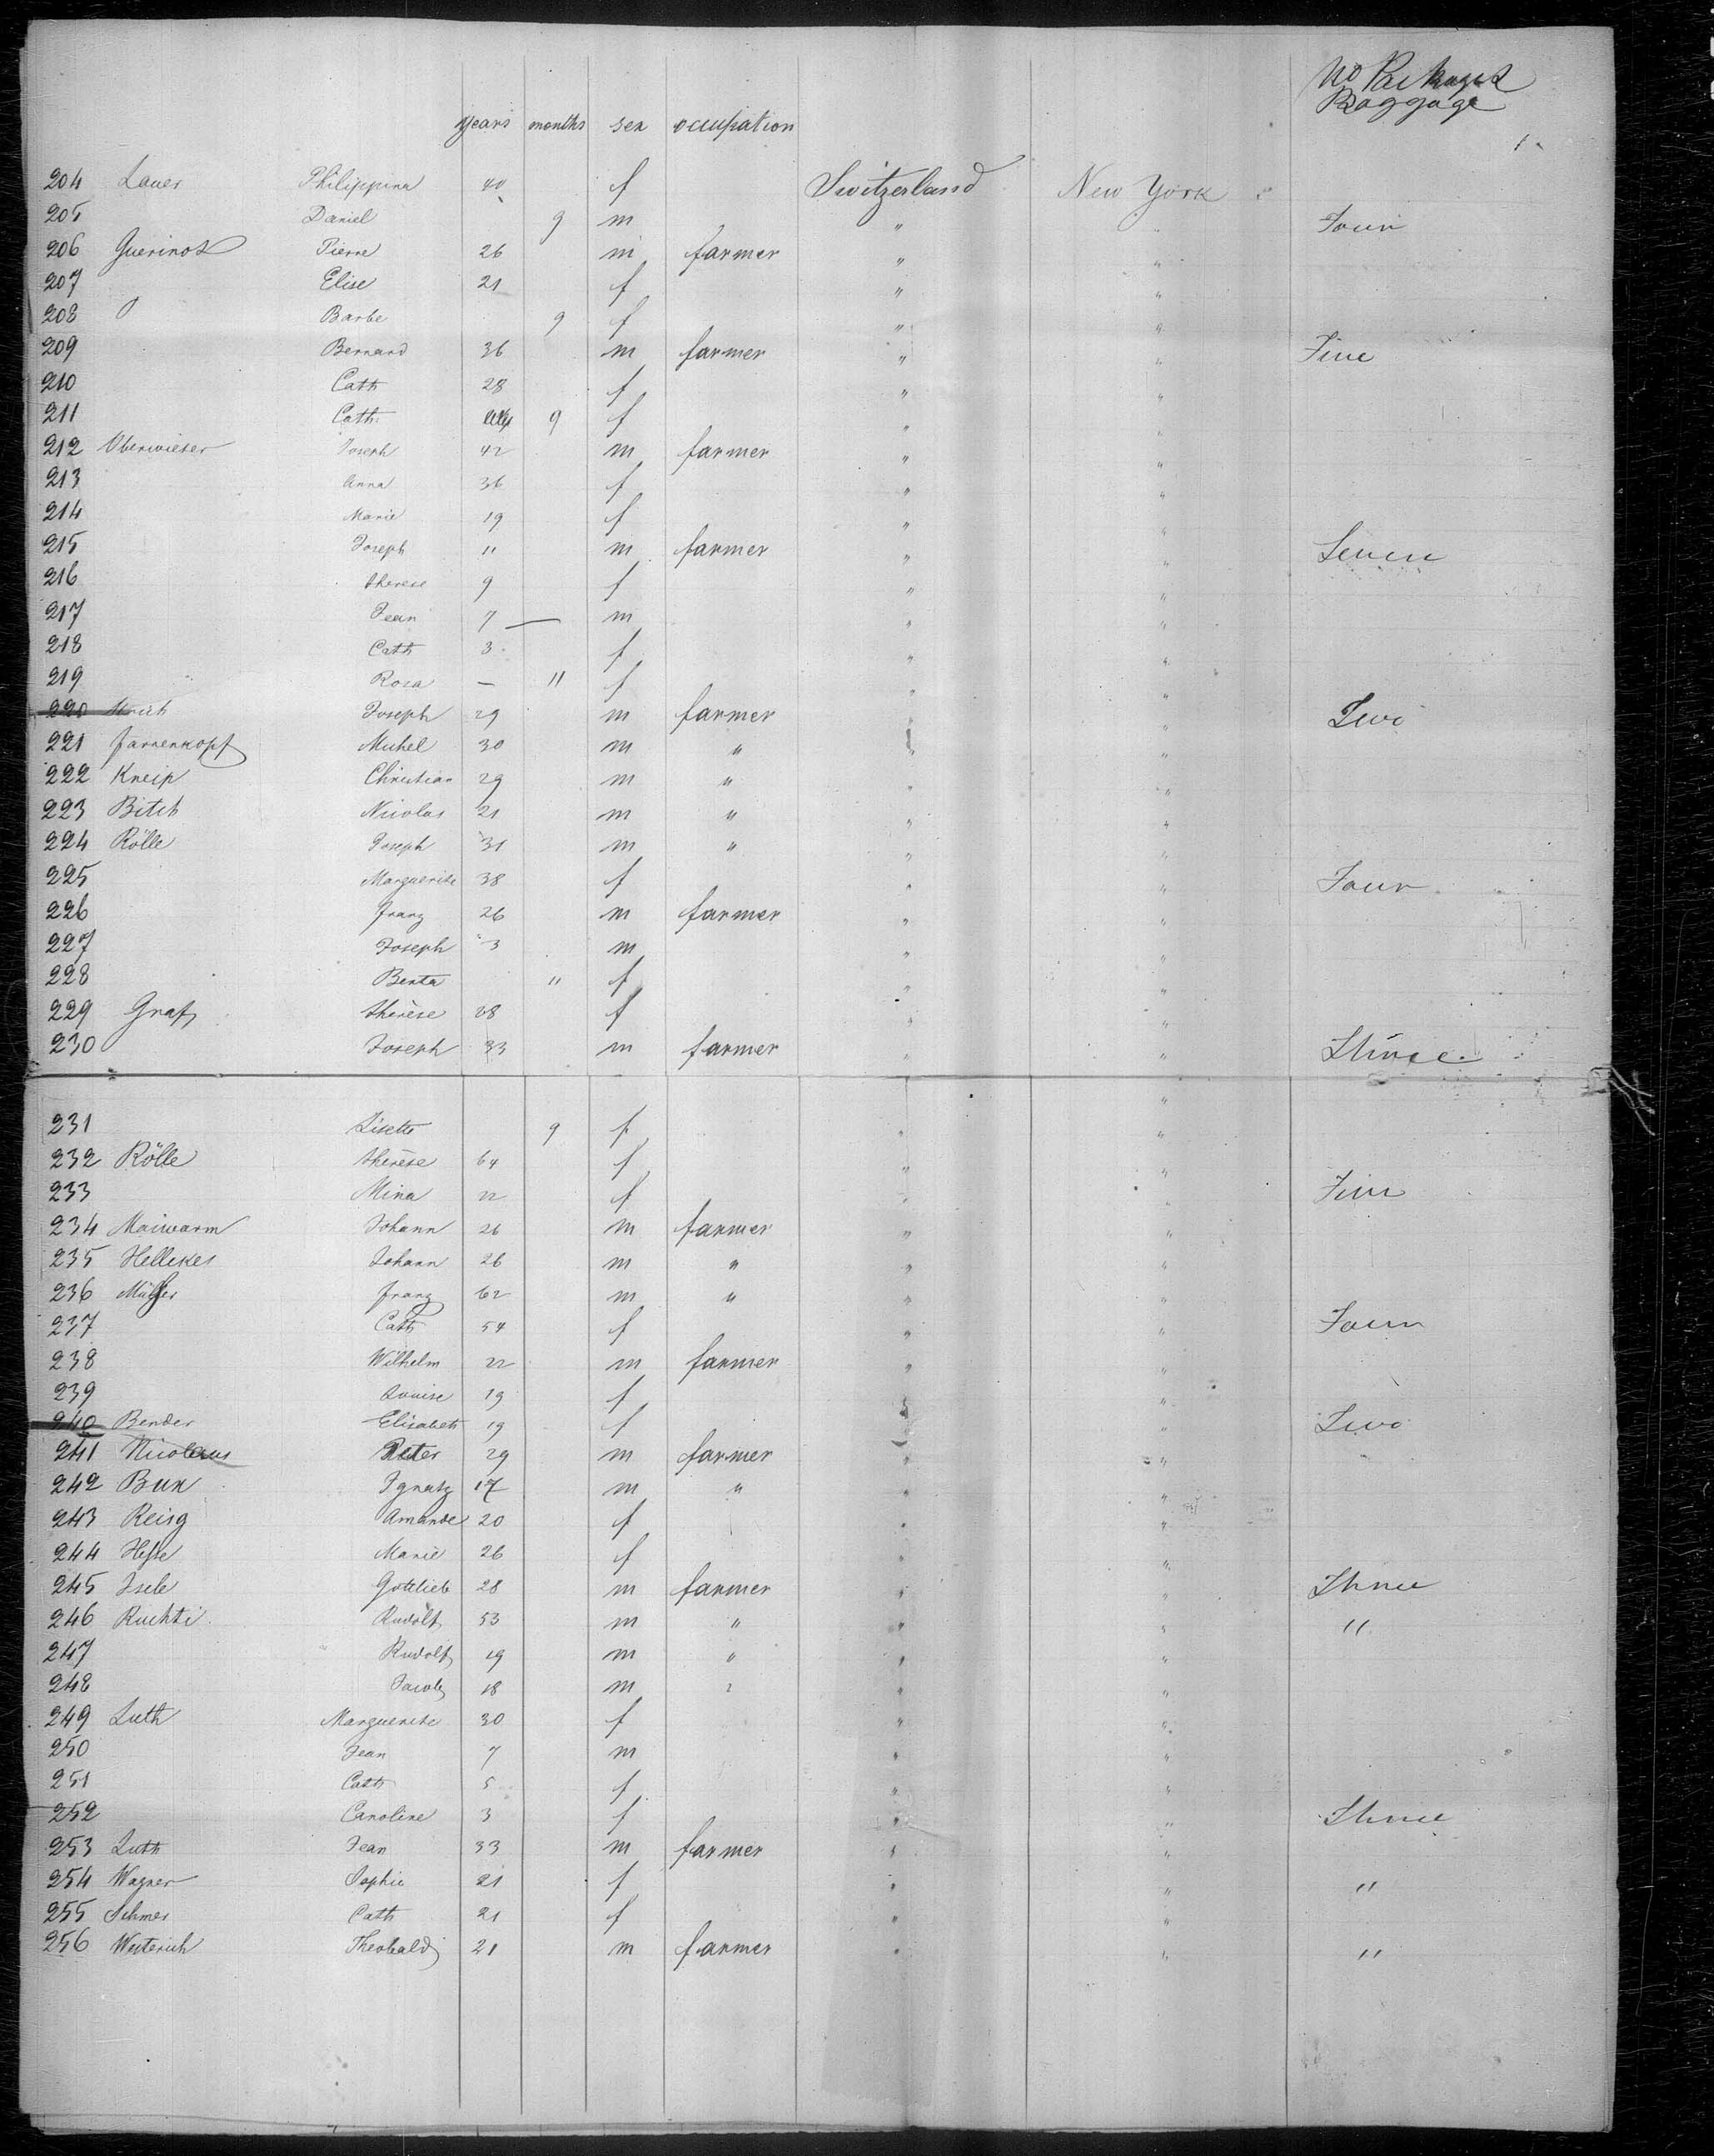 No Packages
Baggage
years months sex occupation
204 Lauer Philippina 40 f Switzerland New York
205 Daniel 9 m " " Four
206 Guerinot Pierre 26 m farmer " "
207 Elise 21 f " "
208 Barbe 9 f " "
209 Bernard 36 m farmer " " Five
210 Cath 28 f " "
211 Cath. 9 f " "
212 Oberwieser Joseph 42 m farmer " "
213 Anna 36 f " "
214 Marie 19 f " "
215 Joseph 11 m farmer " " Seven
216 therese 9 f " "
217 Jean 7 — m " "
218 Cath 3 f " "
219 Rosa — 11 f " "
220 Joseph 29 m farmer " " Two
221 Farnenkopf Michel 30 m " " "
222 Kneip Christian 29 m " " "
223 Bitch Nicolas 21 m " " "
224 Rölle Joseph 31 m " " "
225 Marguerite 38 f " " Four
226 Franz 26 m farmer " "
227 Joseph 3 m " "
228 Berta 11 f " "
229 Graf therèse 28 f " "
230 Joseph 33 m farmer " " Three
231 Lisette 9 f " "
232 Rölle therèse 64 f " "
233 Mina 22 f " " Five
234 Maiwarm Johann 26 m farmer " "
235 Hellekes Johann 26 m " " "
236 Müller Franz 62 m " " "
237 Cath 54 f " " Four
238 Wilhelm 22 m farmer " "
239 Louise 19 f " "
240 Bender Elisabeth 19 f " " Two
241 Nicolaus Peter 29 m farmer " "
242 Bux Ignatz 17 m " " "
243 Reisg Amande 20 f " "
244 Marie 26 f " "
245 Isele Gottlieb 28 m farmer " " Three
246 Ruchti Rudolf 53 m " " " "
247 Rudolf 19 m " " "
248 Jacob 18 m " " "
249 Luth Marguerite 30 f " "
250 Jean 7 m " "
251 Cath 5 f " "
252 Caroline 3 f " " Three
253 Luth Jean 33 m farmer " "
254 Wagner Sophie 21 f " " "
255 Schmer Cath 21 f " "
256 Westerich Theobald 21 m farmer " " "